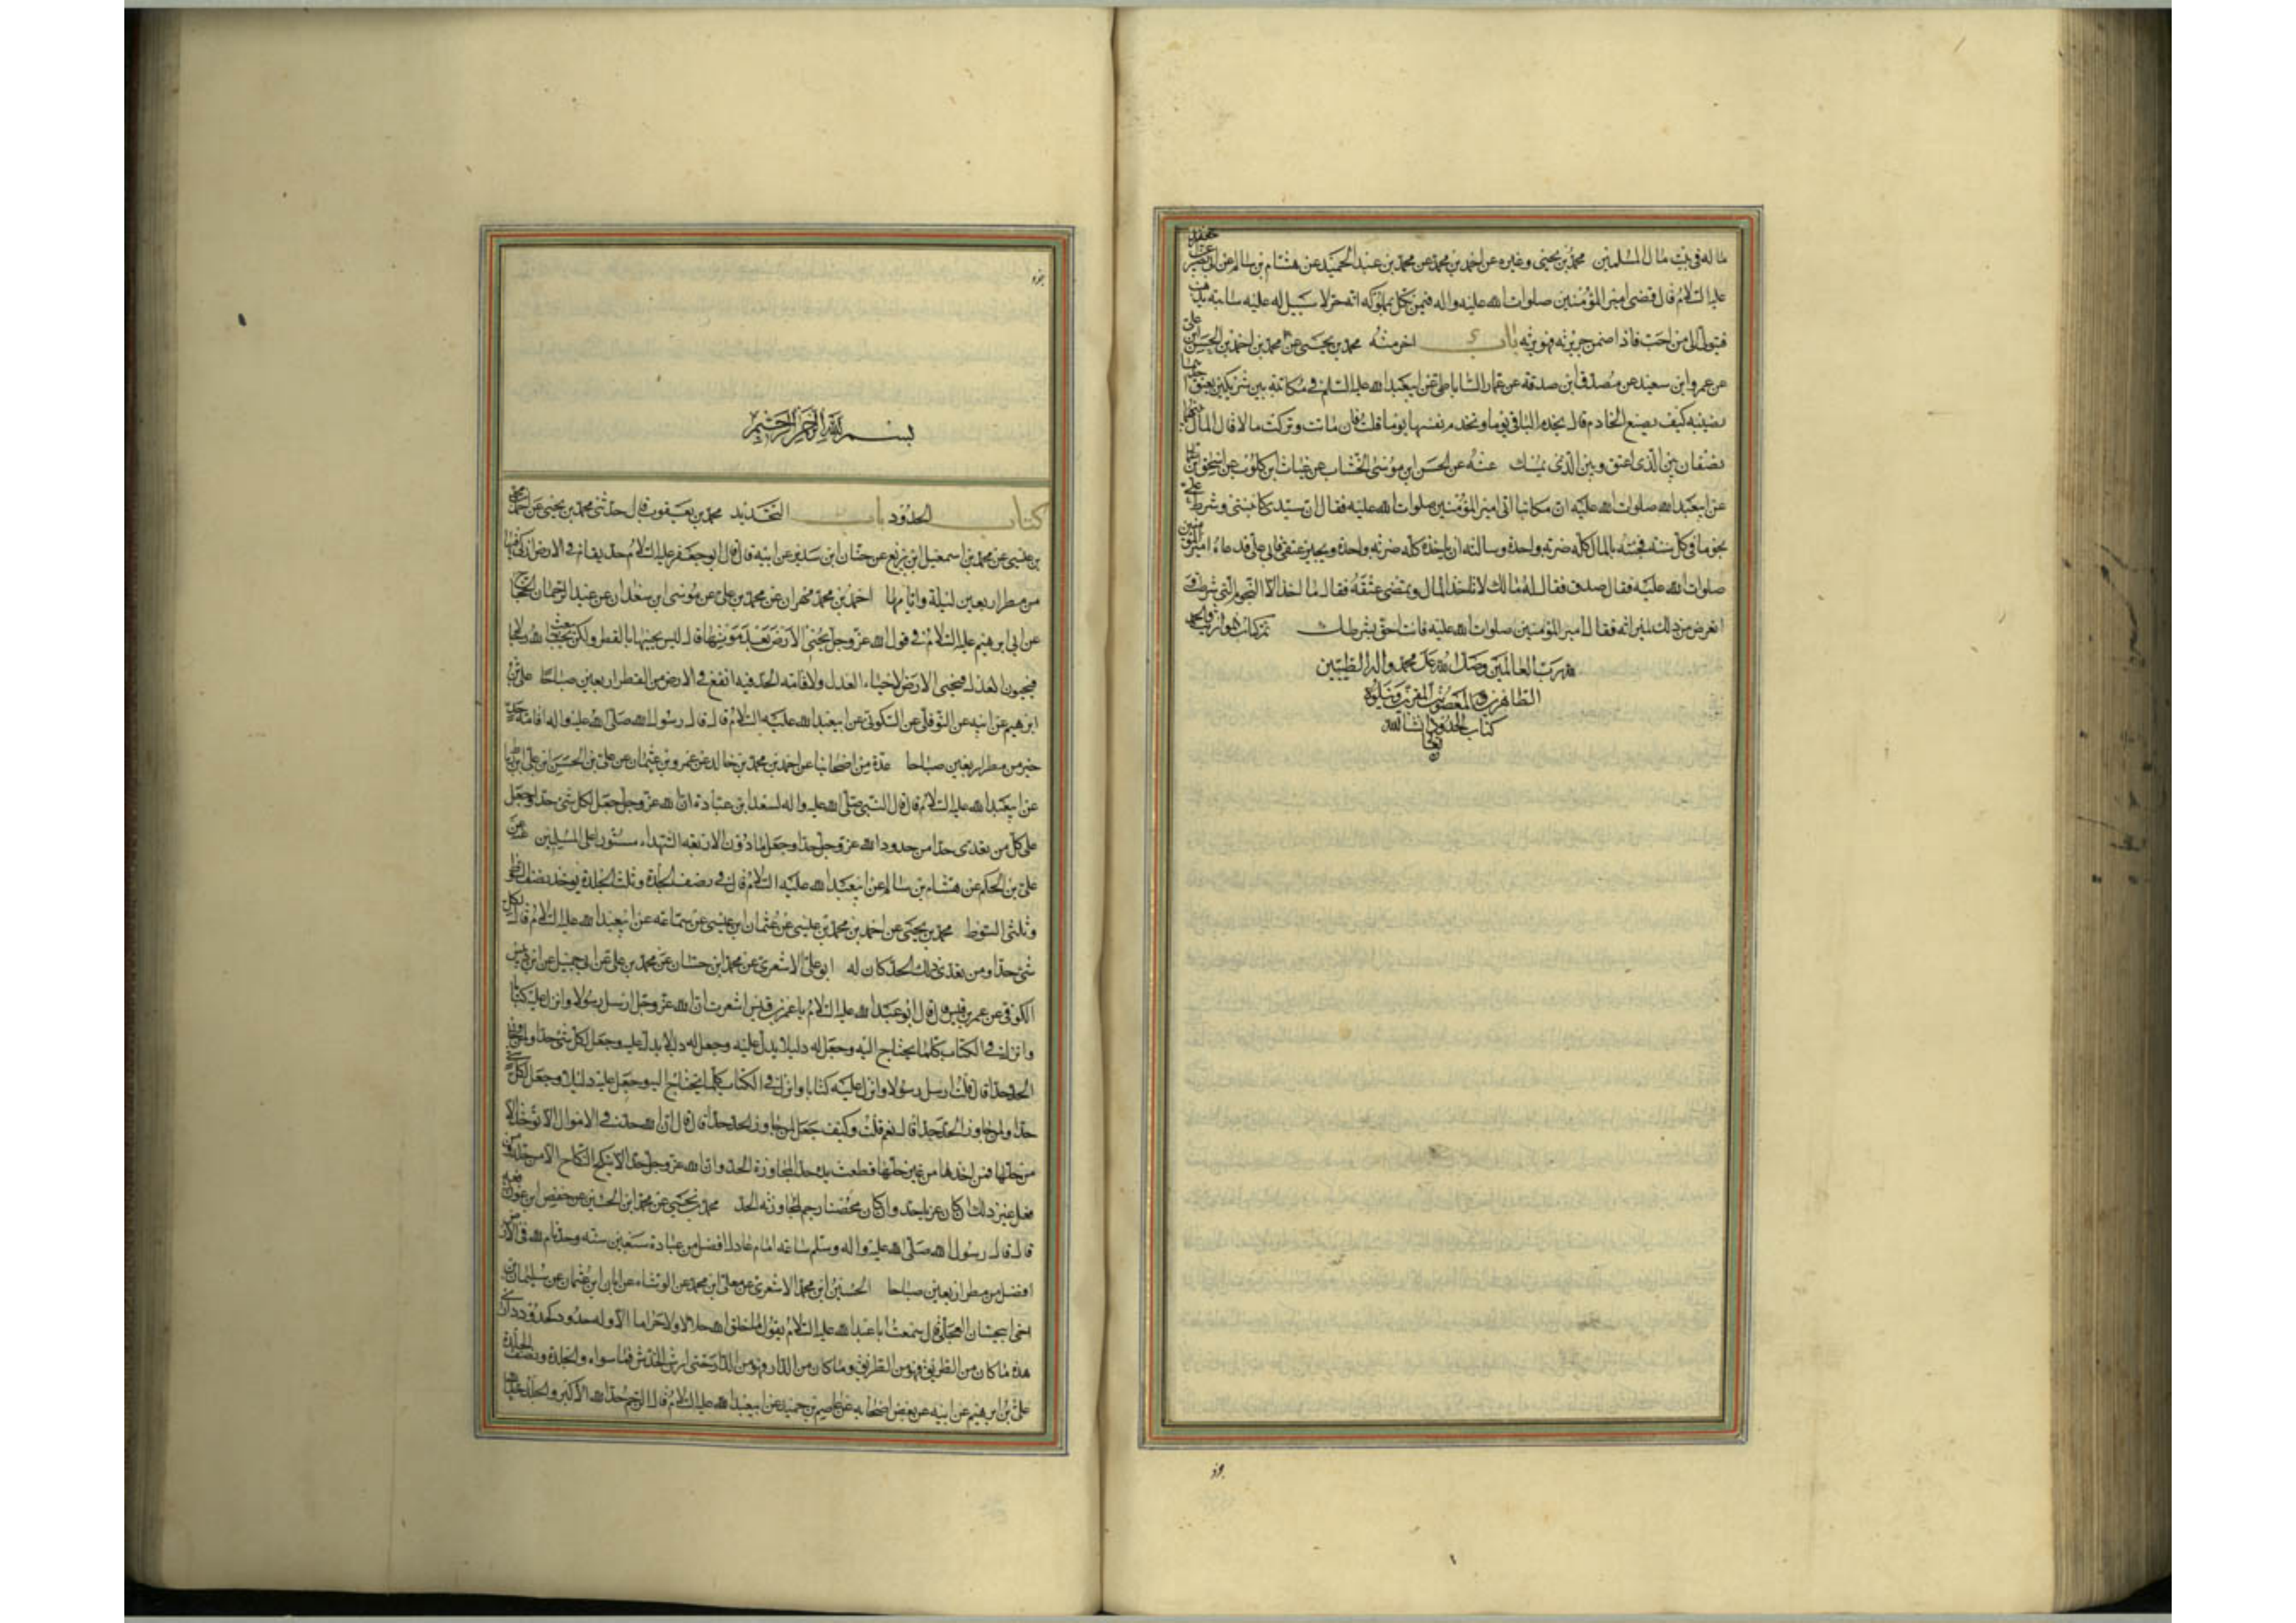 ماله فى بيت مال المسلمين محمد بن يحيى وغيره عن احمد بن محمد عن محمد بن عبد الحميد عن هشام بن سالم عن ابى بصير عن ابى جعفر
عليه السلام قال قضى امير المؤمنين صلوات الله عليه واله فيمن نكل بمملوكه انه حر لا سبيل له عليه سائبة يذهب
فيتولى الى من احب فاذا ضمن جريرته فهو يرثه باب اخر منه محمد بن يحيى عن محمد بن احمد
عن عمرو ابن سعيد عن مصدق ابن صدقة عن عمار الساباطى عن ابيعبد الله عليه السلم فى مكاتبة بين شريكين يعتق احدهما
نصيبه كيف يصنع الخادم قال يخدم الباقى يوما وتخدم نفسها يوما قلت فان ماتت وتركت مالا قال المال بينهما
نصفان بين الذى اعتق وبين الذى يمسك عنه عن الحسن ابن موسى الخشاب عن غياث ابن كلوب عن اسحق بن عمار
عن ابيعبد الله صلوات الله عليه ان مكاتبا اتى امير المؤمنين صلوات الله عليه فقال ان سيدى كاتبنى وشرط على
نجوما فى كل سنة فجئته بالمال كله ضربة واحدة وسالته ان ياخذه كله ضربة واحدة ويجيز عتقى فابى على فدعاه امير المؤمنين
صلوات الله عليه فقال صدق فقال له مالك لا تاخذ المال وتمضى عتقه فقال ما اخذ الا النجوم التى شرطت
اتعرض من ذلك لميراثه فقال امير المؤمنين صلوات الله عليه فانت احق بشرطك تم كتاب المواريث والحمد
لله رب العالمين وصلى الله على محمد واله الطيبين
الطاهرين المعصومين ويتلوه
كتاب الحدود انشا الله
تعالى
بسم الله الرحمن الرحيم
كتاب الحدود باب التحديد محمد بن يعقوب قال حدثنى محمد بن يحيى عن احمد بن محمد
بن عيسى عن محمد بن اسمعيل ابن بزيع عن حنان ابن سدير عن ابيه قال قال ابو جعفر عليه السلام حد يقام فى الارض ازكى فيها
من مطر اربعين ليلة وايامها احمد بن محمد مهران عن محمد بن على عن موسى ابن سعدان عن عبد الرحمان بن الحجاج
عن ابى ابرهيم عليه السلام فى قول الله عز وجل يحيى الارض بعد موتها قال ليس يحييها بالقطر ولكن يبعث الله رجالا
فيحيون العدل فيحيى الارض لاحياء العدل ولاقامة الحد فيه انفع فى الارض من القطر اربعين صباحا على بن
ابرهيم عن ابيه عن النوفلى عن السكونى عن ابيعبد الله عليه السلام قال قال رسول الله صلى الله عليه واله اقامة حد
خير من مطر اربعين صباحا عدة من اصحابنا عن احمد بن محمد بن خالد عن عمرو بن عثمان عن على بن الحسين ابن على ابن رباط
عن ابيعبد الله عليه السلام قال قال النبى صلى الله عليه واله لسعد ابن عبادة ان الله عز وجل جعل لكل شئ حدا وجعل
على كل من تعدى حدا من حدود الله عز وجل حدا وجعل ما دون الاربعه الشهداء مستورا على المسلمين عنه عن
على بن الحكم عن هشام بن سالم عن ابيعبد الله عليه السلام قال فى نصف الجلدة وثلث الجلدة يوخذ بنصف السوط
وثلثى السوط محمد بن يحيى عن احمد بن محمد بن عيسى عن عثمان ابن عيسى عن سماعه عن ابيعبد الله عليه السلام قال لكل
شئ حدا ومن تعدى ذلك الحد كان له ابو على الاشعرى عن محمد ابن حسان عن محمد بن على عن ابى جميل عن ابن دبيس
الكوفى عن عمر بن قيس قال قال ابو عبد الله عليه السلام يا عمر بن قيس اشعرت ان الله عز وجل ارسل رسولا وانزل عليه كتابا
وانزل فى الكتاب كلما يحتاج اليه وجعل له دليلا يدل عليه وجعل له دليلا يدل عليه وجعل لكل شئ حدا ولمن جاوز
الحد حدا قال قلت ارسل رسولا وانزل عليه كتابا وانزل فى الكتاب كلما يحتاج اليه وجعل عليه دليلا وجعل لكل شئ
حدا ولمن جاوز الحد حدا قال نعم قلت وكيف جعل لمن جاوز الحد حدا قال قال ان الله حد فى الاموال الا توخذ الا
من حلها فمن اخذها من غير حلها قطعت يده حدا لمجاوزة الحد وان الله عز وجل حد الا ينكح النكاح الا من حله ومن
فعل غير ذلك ان كان عزبا حد وان كان محصنا رجم لمجاوزته الحد محمد بن يحيى عن محمد ابن الحسين عن حفص ابن عون رفعه
قال قال رسول الله صلى الله عليه واله وسلم ساعة امام عادل افضل من عبادة سبعين سنه وحد يقام لله فى الارض
افضل من مطر اربعين صباحا الحسين ابن محمد الاشعرى عن معلى ابن محمد عن الوشاء عن ابان ابن عثمان عن سليمان بن
اخى ابى حسان العجلى قال سمعت ابا عبد الله عليه السلام يقول ما خلق الله حلالا ولا حراما الا وله حدود كحدود دارى
هذه ما كان من الطريق فهو من الطريق وما كان من الدار فهو من الدار حتى ارش الخدش فما سواه والجلدة ونصف الجلدة
على بن ابرهيم عن ابيه عن بعض اصحابه عن عاصم بن حميد عن ابيعبد الله عليه السلام قال الرجم حد الله الاكبر والجلد